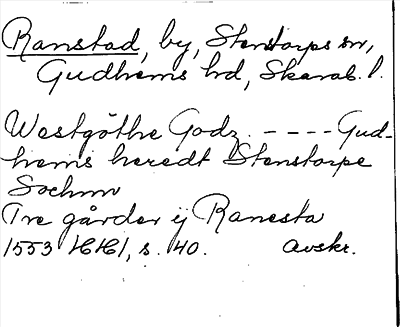 Ranstad, by, Stenstorps sn,
Gudhems hd, Skarab. l.
Westgöthe Godz. ---- Gud-
hems heredt Stenstorpe
Sochnn
Tre gårder ij Ranesta
1553 HH1, s. 40. Avskr.